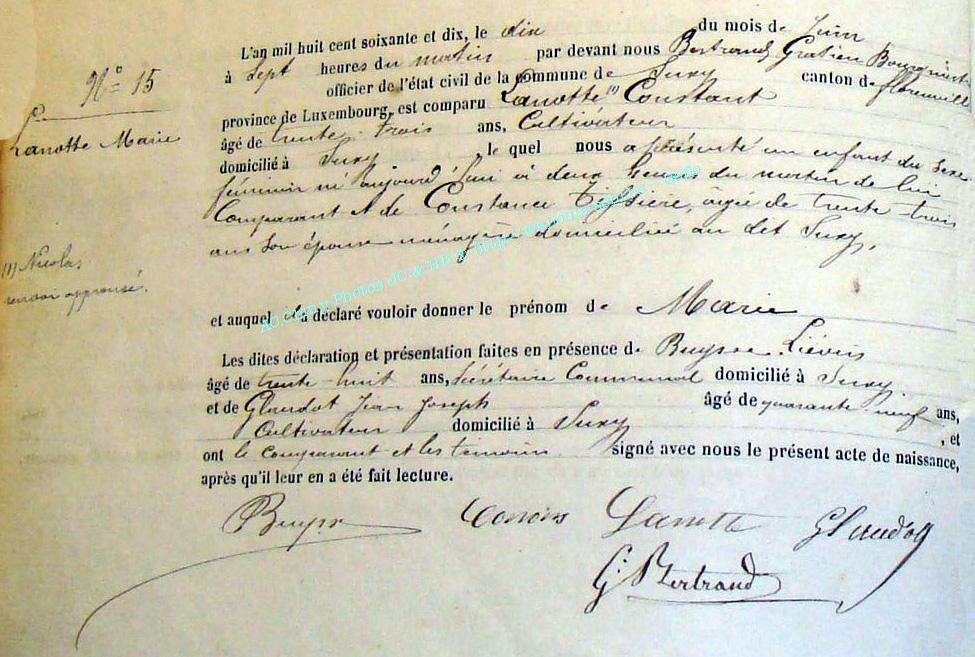 N° 15
Lanotte Marie
(1) Nicolas
renvoi approuvé.
L'an mil huit cent soixante et dix, le dix du mois de Juin
à Sept heures du matin par devant nous Bertrand, Gratien Bourgmestre
officier de l'état civil de la commune de Suxy canton de florenville
province de Luxembourg, est comparu Lanotte (1) Constant
âgé de trente-trois ans, Cultivateur
domicilié à Suxy, le quel nous a présenté un enfant du sexe
féminin né aujourd'hui à deux heures du matin de lui
Comparant et de Constance Tissière, âgée de trente-trois
ans son épouse ménagère domiciliée au dit Suxy.
et auquel il a déclaré vouloir donner le prénom de Marie
Les dites déclaration et présentation faites en présence de Buysse Liévin
âgé de trente-huit ans, Secrétaire Communal domicilié à Suxy
et de Glaudot Jean Joseph âgé de quarante neuf ans,
Cultivateur domicilié à Suxy, et
ont le comparant et les témoins signé avec nous le présent acte de naissance,
après qu'il leur en a été fait lecture.
Buysse Lanotte Glaudot
G. Bertrand